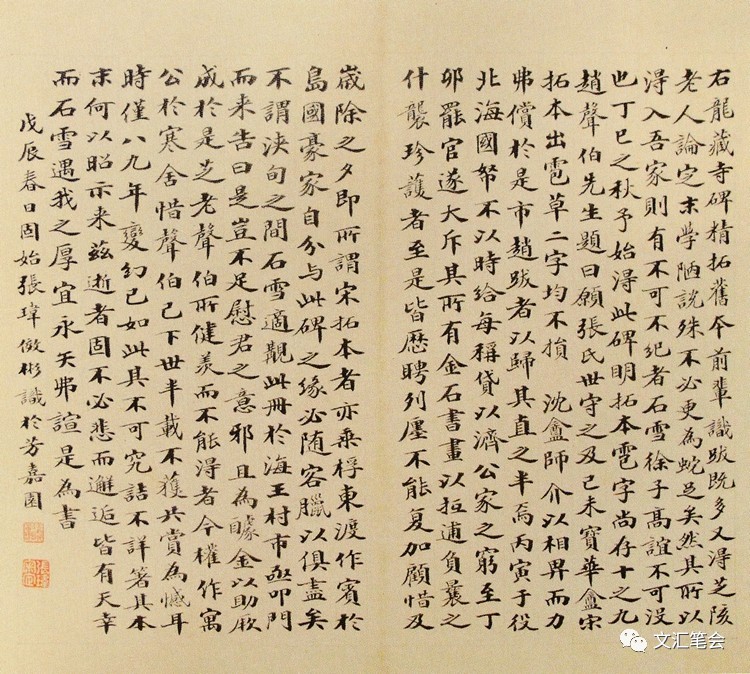 右龍藏寺碑精拓舊本前輩識跋既多又得芝陔
老人論定末學陋說殊不必更為蛇足矣然其所以
淂入吾家則有不可不紀者石雪徐子高誼不可沒
也丁巳之秋予始淂此碑明拓本雹字尚存十之九
趙聲伯先生題曰願張氏世守之及己未寶華盦宋
拓本出雹草二字均不損 沈盦師介以相畀而力
弗償於是市趙跋者以歸其直之半焉丙寅于役
北海國帑不以時給每稱貸以濟公家之窮至丁
卯罷官遂大斥其所有金石書畫以拉逋負曩之
什襲珍護者至是皆歷聘列廛不能复加顧惜及
歲除之夕即所謂宋拓本者亦乘桴東渡作賓於
島國豪家自分与此碑之缘必随客臘以俱盡矣
不謂浹旬之間石雪適觀此冊於海王村市亟叩門
而来告曰是豈不足慰君之意邪且為醵金以助厥
成於是芝老聲伯所健羨而不能淂者今權作寓
公於寒舍惜聲伯已下世半載不獲共賞為憾耳
時僅八九年變幻已如此其不可究詰不詳箸其本
末何以昭示来兹逝者固不必悲而邂逅皆有天幸
而石雪遇我之厚宜永矢弗諠是為書
戊辰春日固始張瑋傚彬識於芳嘉園
文汇笔会